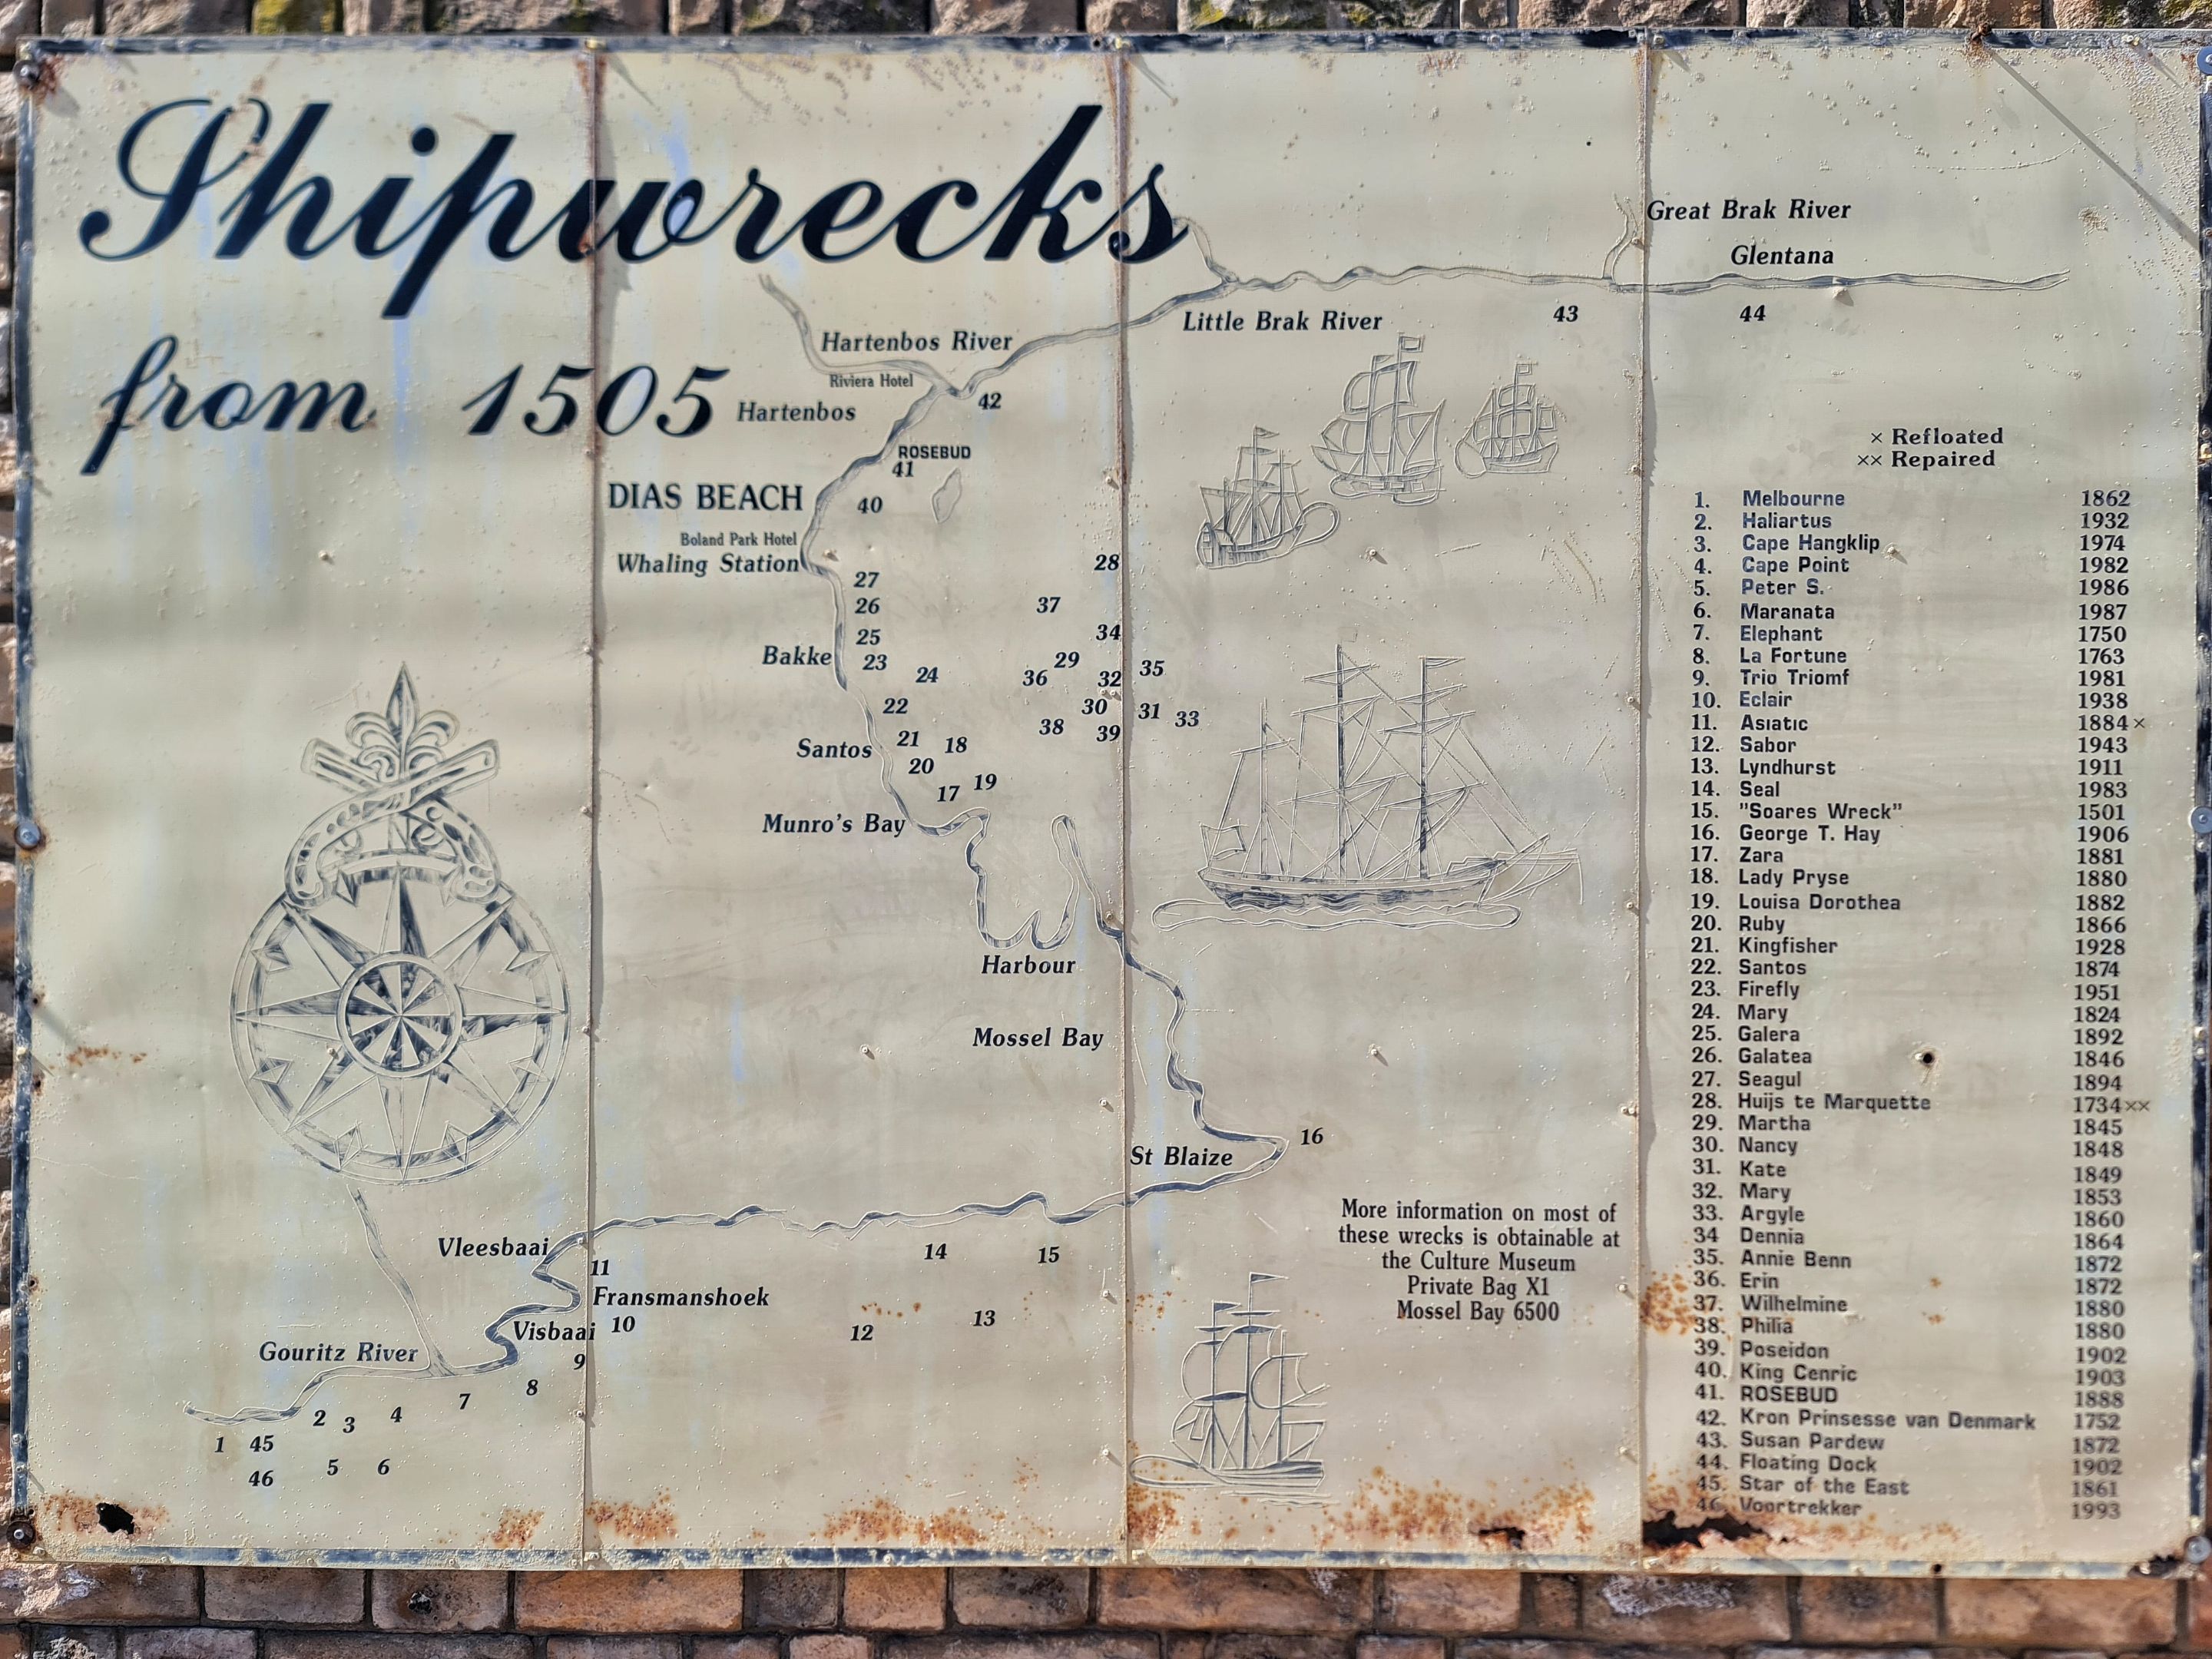 Shipwrecks
from 1505
Great Brak River
Glentana
Little Brak River
43
44
Hartenbos River
Riviera Hotel
Hartenbos
42
ROSEBUD
41
DIAS BEACH
40
Boland Park Hotel
Whaling Station
28
27
37
26
34
25
Bakke
23
24
29
35
36
32
22
30
31
33
38
39
21
18
Santos
20
19
17
Munro's Bay
N
Harbour
Mossel Bay
16
St Blaize
Vleesbaai
11
14
15
Fransmanshoek
Visbaai
10
12
13
Gouritz River
9
8
7
2
3
4
1
45
5
6
46
More information on most of
these wrecks is obtainable at
the Culture Museum
Private Bag X1
Mossel Bay 6500
× Refloated
×× Repaired
1. Melbourne 1862
2. Haliartus 1932
3. Cape Hangklip 1974
4. Cape Point 1982
5. Peter S. 1986
6. Maranata 1987
7. Elephant 1750
8. La Fortune 1763
9. Trio Triomf 1981
10. Eclair 1938
11. Asiatic 1884×
12. Sabor 1943
13. Lyndhurst 1911
14. Seal 1983
15. "Soares Wreck" 1501
16. George T. Hay 1906
17. Zara 1881
18. Lady Pryse 1880
19. Louisa Dorothea 1882
20. Ruby 1866
21. Kingfisher 1928
22. Santos 1874
23. Firefly 1951
24. Mary 1824
25. Galera 1892
26. Galatea 1846
27. Seagul 1894
28. Huijs te Marquette 1734××
29. Martha 1845
30. Nancy 1848
31. Kate 1849
32. Mary 1853
33. Argyle 1860
34 Dennia 1864
35. Annie Benn 1872
36. Erin 1872
37. Wilhelmine 1880
38. Philia 1880
39. Poseidon 1902
40. King Cenric 1903
41. ROSEBUD 1888
42. Kron Prinsesse van Denmark 1752
43. Susan Pardew 1872
44. Floating Dock 1902
45. Star of the East 1861
46. Voortrekker 1993